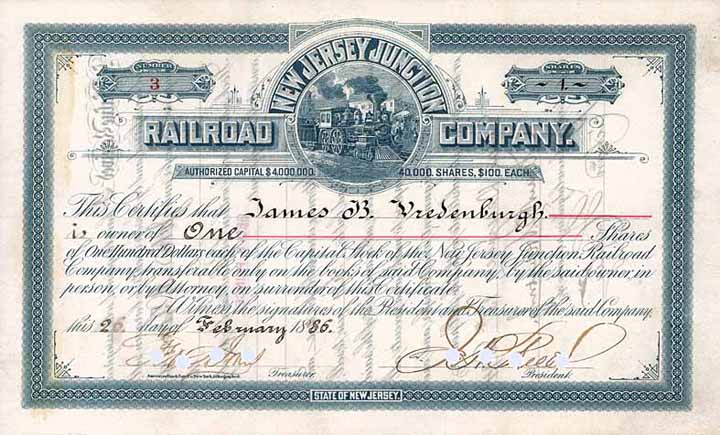 NUMBER
3
SHARES
1
NEW JERSEY JUNCTION
RAILROAD COMPANY.
AUTHORIZED CAPITAL $4,000,000. 40,000 SHARES, $100. EACH.
This Certifies that James B. Vredenburgh
is owner of One Shares
of One Hundred Dollars each of the Capital Stock of the New Jersey Junction Railroad
Company, transferable only on the books of said Company, by the said owner, in
person, or by Attorney, on surrender of this Certificate.
Witness the signatures of the President and Treasurer of the said Company,
this 26 day of February 1886.
Treasurer.
President.
STATE OF NEW JERSEY.